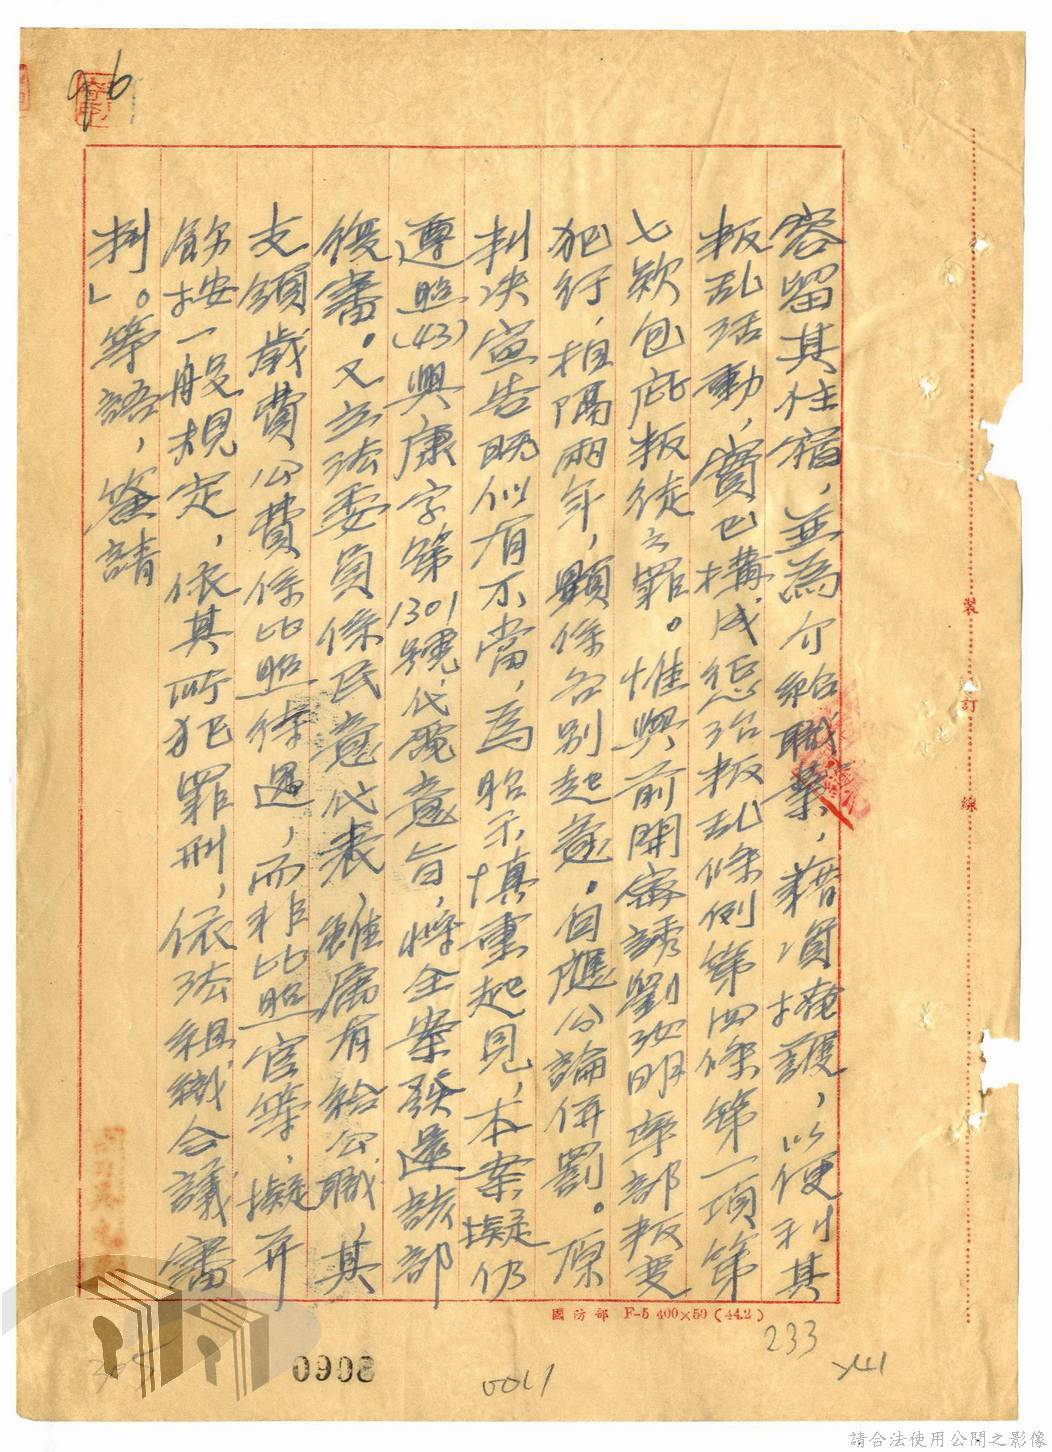 容留其住宿，並為介紹職業，藉資掩護，以便利其
叛乱活動，實已構成懲治叛乱條例第四條第一項第
七款包庇叛徒之罪。惟與前開審誘劉汝明率部叛变
犯行，相隔兩年，顯係各別起意。自應分論併罰。原
判决宣告既似有不當，為昭示慎重起見，本案擬仍
遵照(43)興康字第1301號代電意旨，將全案發還該部
復審。又立法委員係民意代表，雖屬有給公職，其
支領歲費公費係比照待遇，而非比照官等，擬并
飭按一般規定，依其所犯罪刑，依法組織合議審
判」。等語，簽請
裝
訂
線
國防部 F-5 400×50 (44.2)
233
0908
請合法使用公開之影像